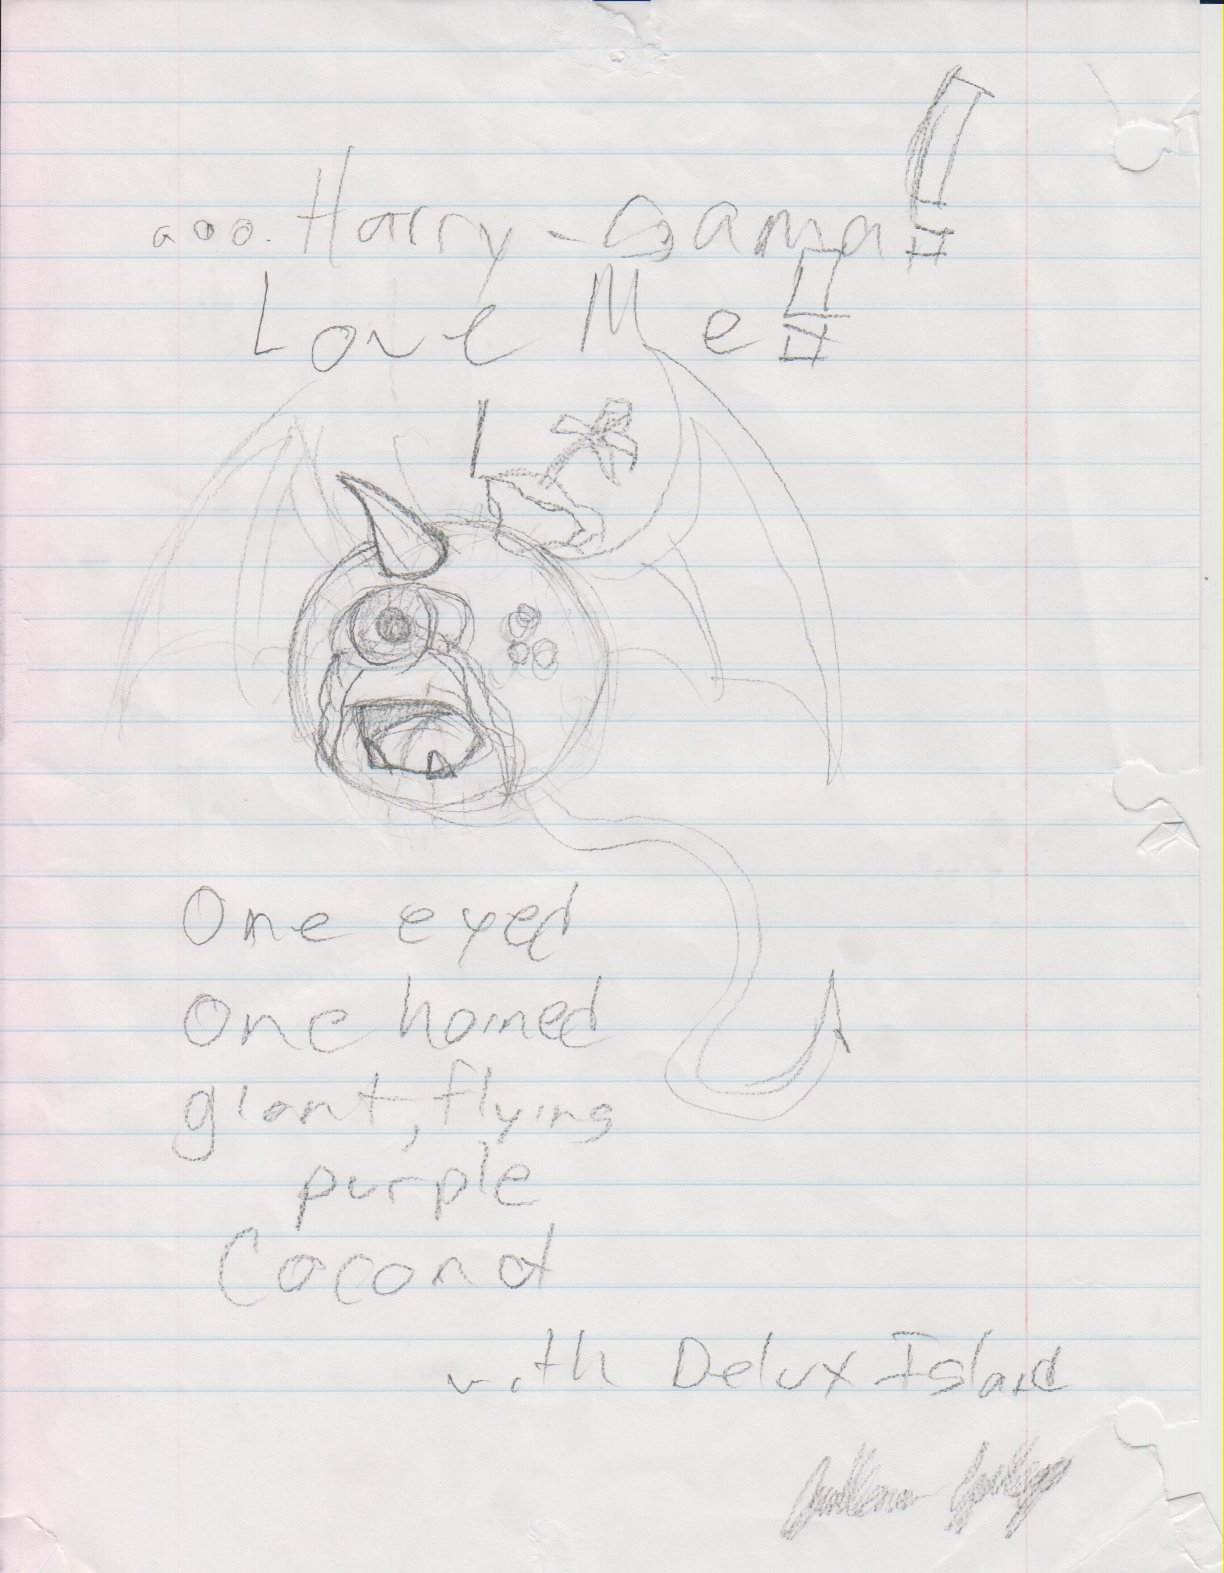 ooo. Harry-Gama!
Love Me!!
One eyed
One horned
giant, flying
purple
Coconot
with Delux Island